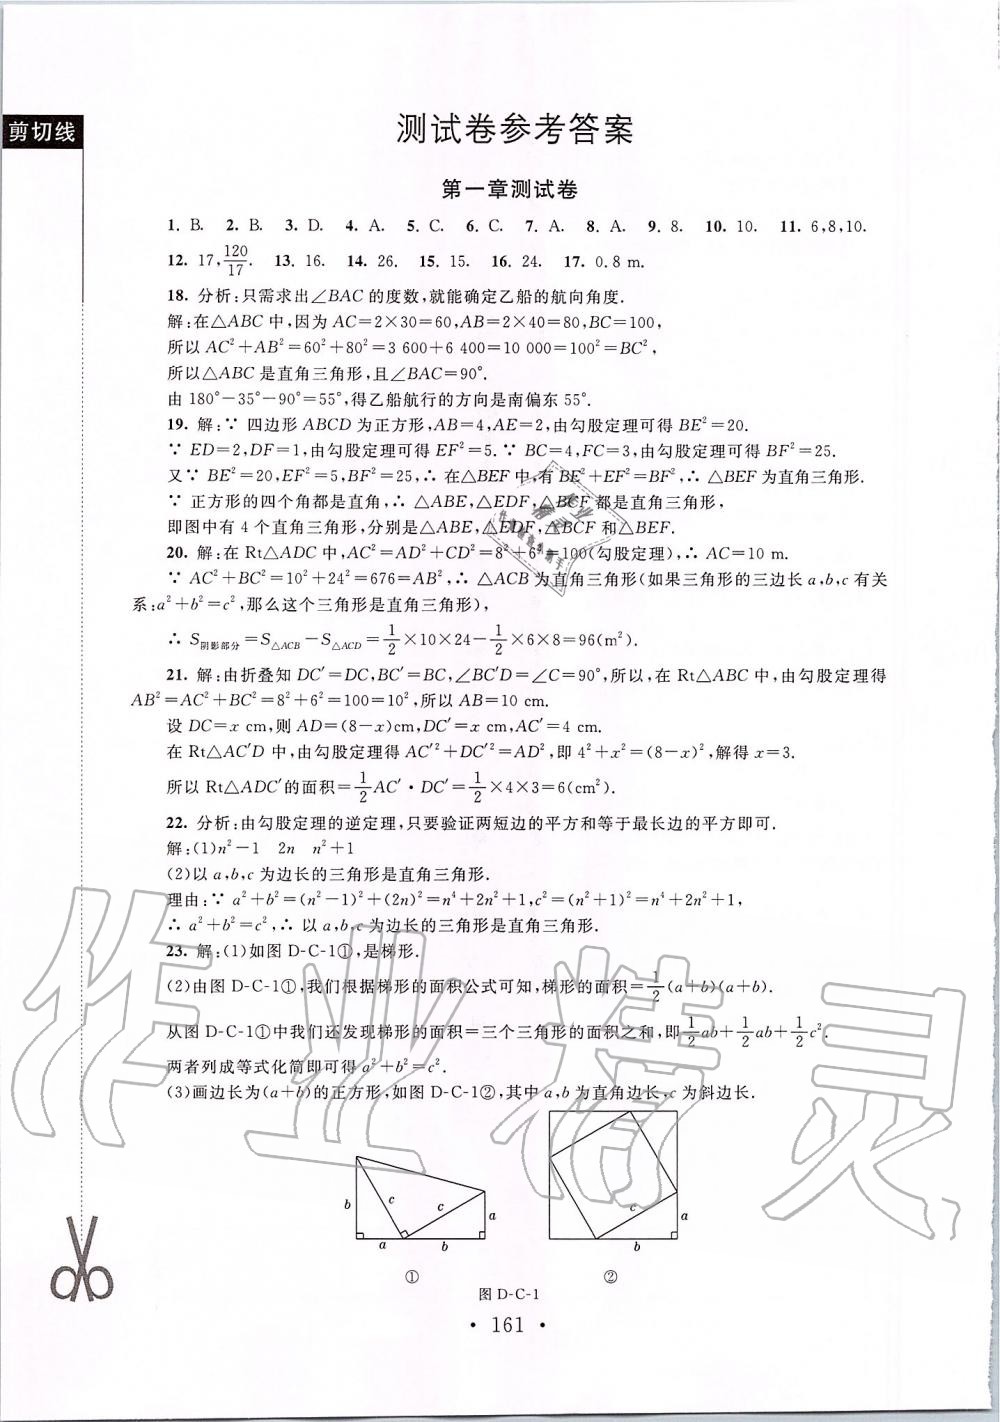 剪切线
测试卷参考答案
第一章测试卷
1. B. 2. B. 3. D. 4. A. 5. C. 6. C. 7. A. 8. A. 9. 8. 10. 10. 11. 6,8,10.
12. 17,120/17. 13. 16. 14. 26. 15. 15. 16. 24. 17. 0.8 m.
18. 分析:只需求出∠BAC的度数,就能确定乙船的航向角度.
解:在△ABC中,因为AC=2×30=60,AB=2×40=80,BC=100,
所以AC²+AB²=60²+80²=3 600+6 400=10 000=100²=BC²,
所以△ABC是直角三角形,且∠BAC=90°.
由180°-35°-90°=55°,得乙船航行的方向是南偏东55°.
19. 解:∵ 四边形ABCD为正方形,AB=4,AE=2,由勾股定理可得BE²=20.
∵ ED=2,DF=1,由勾股定理可得EF²=5.∵ BC=4,FC=3,由勾股定理可得BF²=25.
又∵ BE²=20,EF²=5,BF²=25,∴ 在△BEF中,有BE²+EF²=BF²,∴△BEF为直角三角形.
∵ 正方形的四个角都是直角,∴ △ABE,△EDF,△BCF都是直角三角形,
即图中有4个直角三角形,分别是△ABE,△EDF,△BCF和△BEF.
20. 解:在Rt△ADC中,AC²=AD²+CD²=8²+6²=100(勾股定理),∴ AC=10 m.
∵ AC²+BC²=10²+24²=676=AB²,∴ △ACB为直角三角形(如果三角形的三边长a,b,c有关
系:a²+b²=c²,那么这个三角形是直角三角形),
∴ S阴影部分=S△ACB-S△ACD=1/2×10×24-1/2×6×8=96(m²).
21. 解:由折叠知DC′=DC,BC′=BC,∠BC′D=∠C=90°,所以,在Rt△ABC中,由勾股定理得
AB²=AC²+BC²=8²+6²=100=10²,所以AB=10 cm.
设DC=x cm,则AD=(8-x)cm,DC′=x cm,AC′=4 cm.
在Rt△AC′D中,由勾股定理得AC′²+DC′²=AD²,即4²+x²=(8-x)²,解得x=3.
所以Rt△ADC′的面积=1/2AC′·DC′=1/2×4×3=6(cm²).
22. 分析:由勾股定理的逆定理,只要验证两短边的平方和等于最长边的平方即可.
解:(1)n²-1 2n n²+1
(2)以a,b,c为边长的三角形是直角三角形.
理由:∵ a²+b²=(n²-1)²+(2n)²=n⁴+2n²+1,c²=(n²+1)²=n⁴+2n²+1,
∴ a²+b²=c²,∴ 以a,b,c为边长的三角形是直角三角形.
23. 解:(1)如图D-C-1①,是梯形.
(2)由图D-C-1①,我们根据梯形的面积公式可知,梯形的面积=1/2(a+b)(a+b).
从图D-C-1①中我们还发现梯形的面积=三个三角形的面积之和,即1/2ab+1/2ab+1/2c².
两者列成等式化简即可得a²+b²=c².
(3)画边长为(a+b)的正方形,如图D-C-1②,其中a,b为直角边长,c为斜边长.
b c c a
a b
①
c a
b
②
图D-C-1
· 161 ·
作业精灵